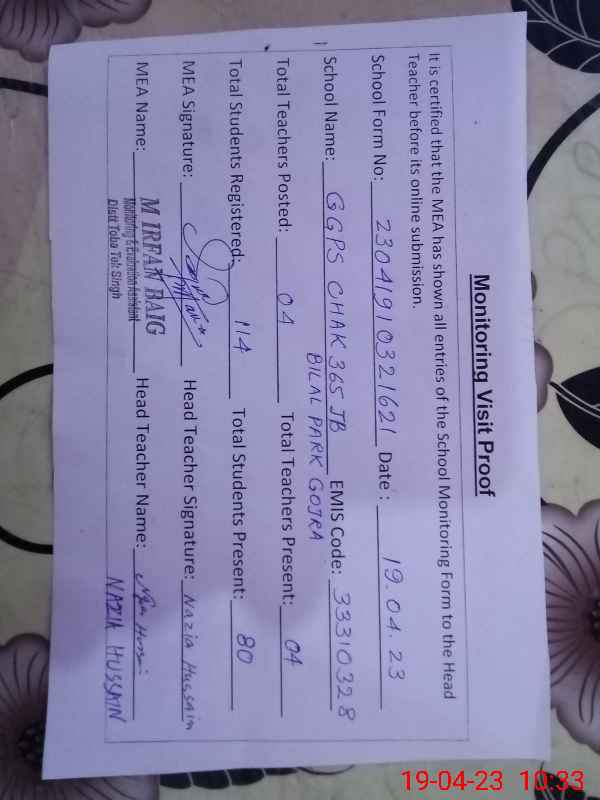 Monitoring Visit Proof
It is certified that the MEA has shown all entries of the School Monitoring Form to the Head
Teacher before its online submission.
School Form No: 23041910321621 Date : 19.04.23
School Name: GGPS CHAK 365 JB EMIS Code: 33310328
BILAL PARK GOJRA
Total Teachers Posted: 04 Total Teachers Present: 04
Total Students Registered: 114 Total Students Present: 80
MEA Signature: Head Teacher Signature: Nazia Hussain
MEA Name: M IRFAN BAIG Head Teacher Name: Nazia Hussain
Monitoring & Evaluation Assistant
Distt Toba Tek Singh
NAZIA HUSSAIN
19-04-23 10:33